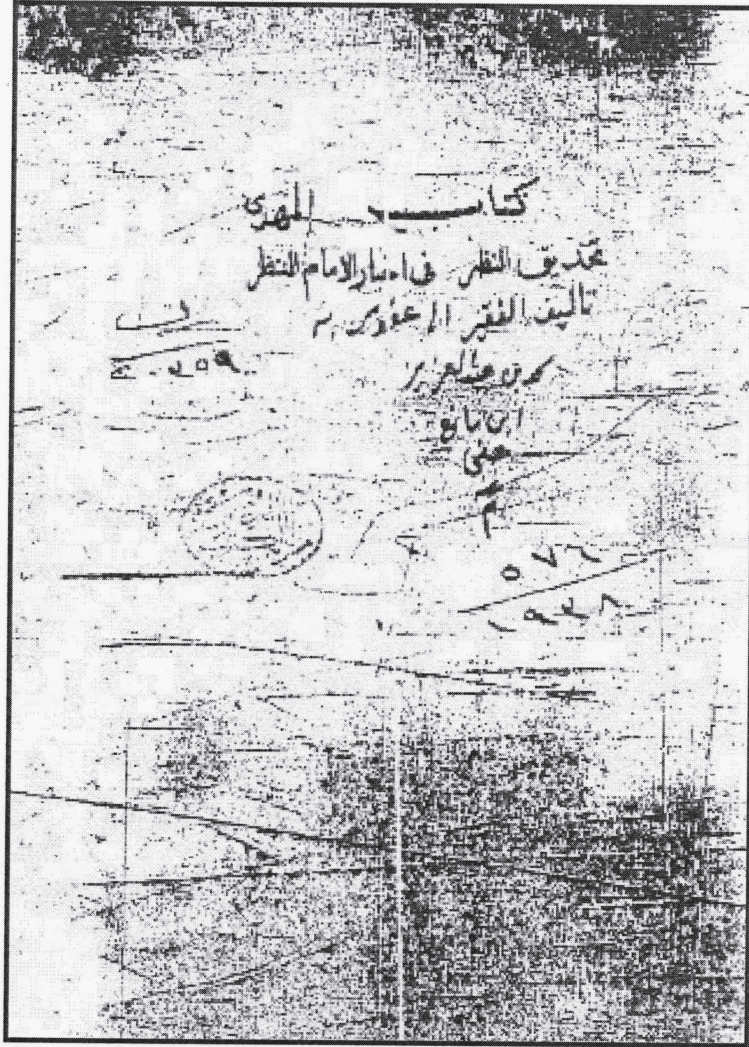 كتاب المهدي
تحديق النظر في اخبار الامام المنتظر
تاليف الفقير الى عفو ربه
محمد بن عبدالعزيز
ابن مانع
عفى
عنه
م
٥٧٦
١٩٣٨